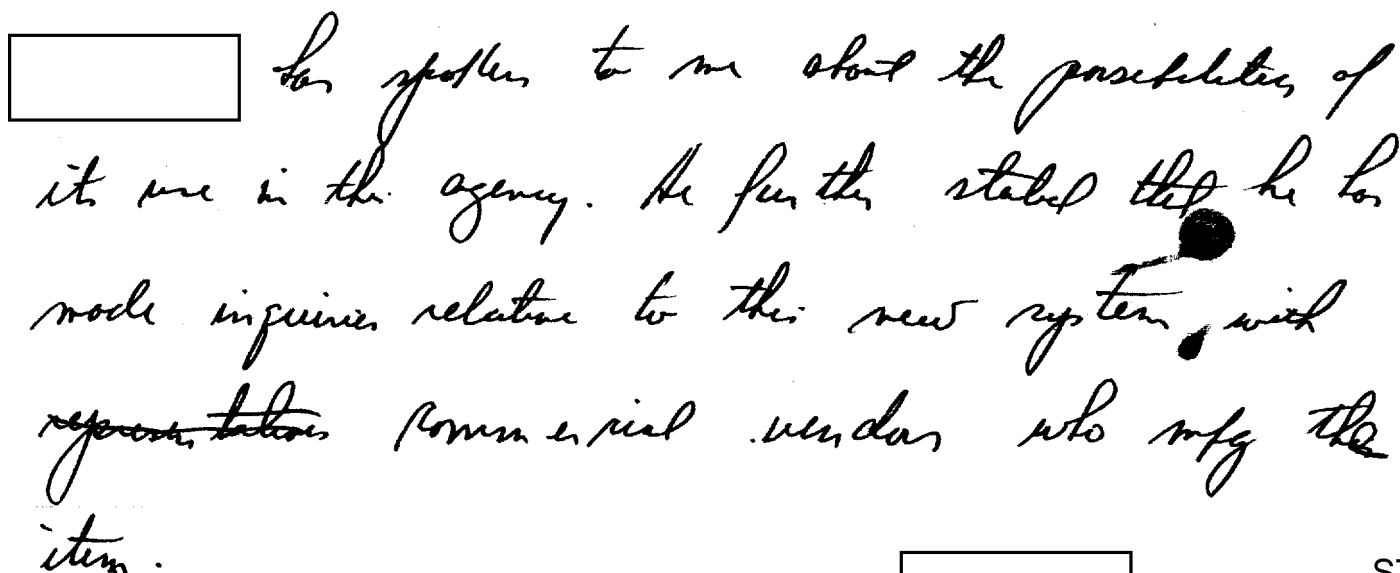 has spoken to me about the possibilities of
its use in this agency. He further stated that he has
made inquiries relative to this new system, with
representatives commercial vendors who mfg the
item.